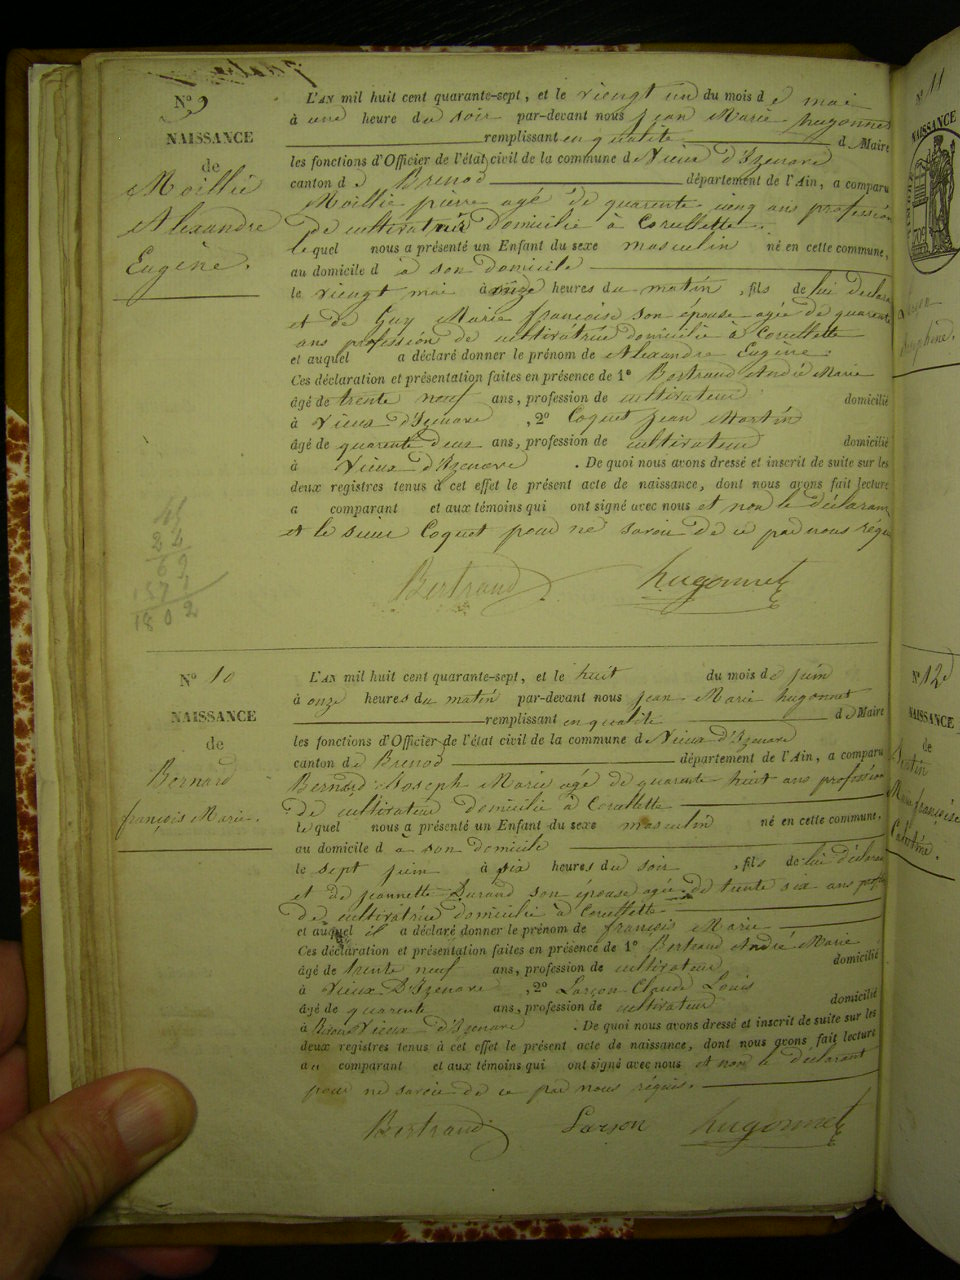 N° 9
NAISSANCE
de
Moillie
Alexandre
Eugène.
L'AN mil huit cent quarante-sept, et le viengt un du mois d e mai
à une heure du soir par-devant nous jean Marie hugonnet
remplissant en qualité d e Maire
les fonctions d'Officier de l'état civil de la commune d e Vieux d'Izenave
canton d e Brenod département de l'Ain, a comparu
Moillie pierre agé de quarente cinq ans profession
De cultivateur domicilié à Corcellette.
lequel nous a présenté un Enfant du sexe masculin né en cette commune,
au domicile d à son domicile
le viengt mai à onze heures du matin , fils de lui declara
et de Guy Marie françoise son épouse agée de quarente
ans profession de cultivatrice domicilié à Corcellette
et auquel a déclaré donner le prénom de Alexandre Eugène.
Ces déclaration et présentation faites en présence de 1° Bertraud André Marie
âgé de trente neuf ans, profession de cultivateur domicilié
à Vieux d'Izenave , 2° Coquet jean Martin
âgé de quarente deux ans, profession de cultivateur domicilié
à Vieux d'Izenave . De quoi nous avons dressé et inscrit de suite sur les
deux registres tenus à cet effet le présent acte de naissance, dont nous avons fait lecture
a comparant et aux témoins qui ont signé avec nous et non le déclarant
et le sieur Coquet pour ne savoir de ce par nous réqu
Bertraud hugonnet
1802
N° 10
NAISSANCE
de
Bernard
françois Marie.
L'AN mil huit cent quarante-sept, et le huit du mois d e juin
à onze heures du matin par-devant nous jean Marie hugonnet
remplissant en qualité d e Maire
les fonctions d'Officier de l'état civil de la commune d e Vieux d'Izenave
canton d e Brenod département de l'Ain, a comparu
Bernard Joseph Marie agé de quarante huit ans profession
De cultivateur domicilié à Corcellette
lequel nous a présenté un Enfant du sexe masculin né en cette commune,
au domicile d à son domicile
le sept juin à six heures du soir , fils de lui déclarant
et de jeannette Durand son épouse agée de trente six ans
De cultivatrice domicilié à Corcellette
et auquel il a déclaré donner le prénom de françois Marie
Ces déclaration et présentation faites en présence de 1° Bertraud André Marie
âgé de trente neuf ans, profession de cultivateur domicilié
à Vieux D'Izenave , 2° Larçon Claude Louis
âgé de quarente ans, profession de cultivateur domicilié
à Vieux d'Izenave . De quoi nous avons dressé et inscrit de suite sur les
deux registres tenus à cet effet le présent acte de naissance, dont nous avons fait lecture
au comparant et aux témoins qui ont signé avec nous et non le déclarant
pour ne savoir de ce par nous réquis.
Bertraud Larson hugonnet
N° 11
NAISSANCE
N° 12
NAISSANCE
de
Marie françoise